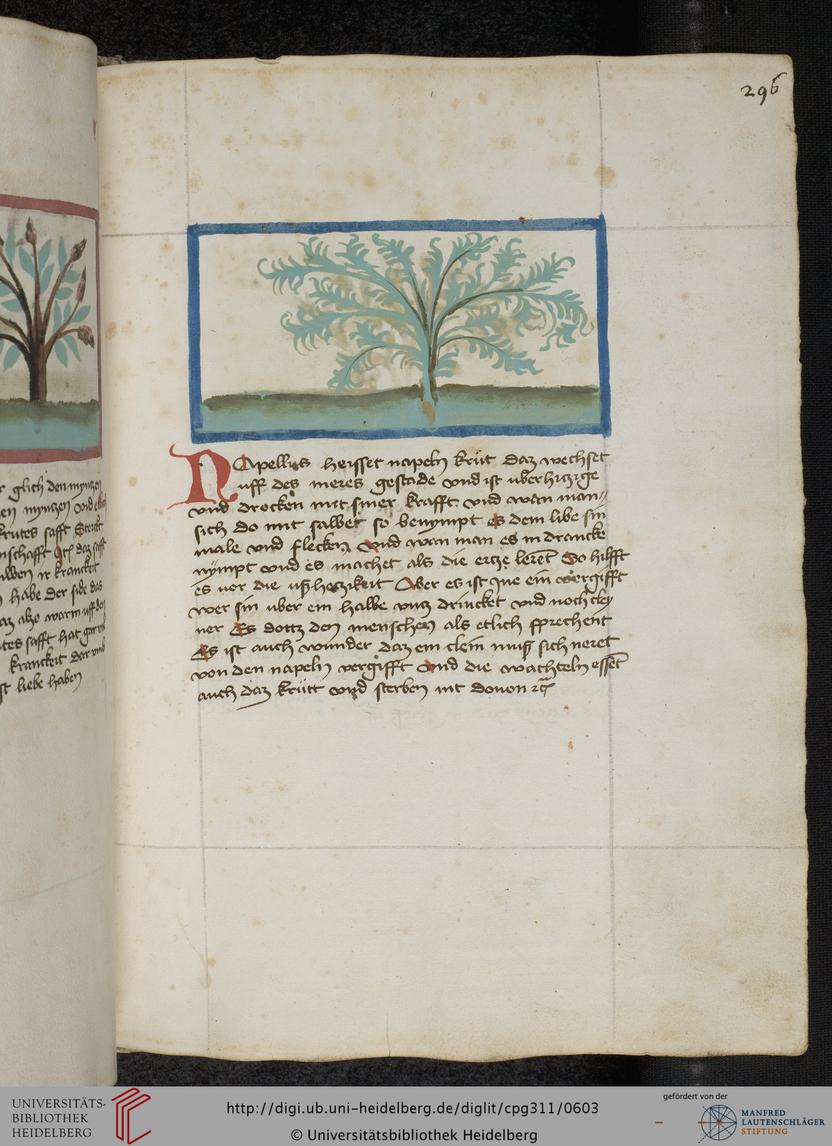 296
r glich den myntzen
en myntzen vnd
krutes safft
nschafft Jtem daz safft
ir kranckeit
habe der side das
az also warm vff den
utes safft hat gar
kranckeit dar vmb
st liebe haben
NApellus heisset napeln krut daz wechset
uff des meres gestade vnd ist uberhitzige
vnd drocken mit siner krafft vnd wan man
sich do mit salbet so benympt es dem libe sin
male vnd flecken Vnd wan man es in drancke
nympt vnd es machet als die ertze lerent So hilfft
es vor die vsßsetzikeit Aber es ist Jne ein vergifft
wer sin uber ein halbe vntz drincket vnd noch cley
ner Es dottz den menschen als etlich sprechent
Es ist auch wunder daz ein clein muß sich neret
von den napeln vergifft Vnd die wachteln essent
auch daz krutt vnd sterben nit douon
UNIVERSITÄTS-
BIBLIOTHEK
HEIDELBERG
http://digi.ub.uni-heidelberg.de/diglit/cpg311/0603
© Universitätsbibliothek Heidelberg
gefördert von der
MANFRED
LAUTENSCHLÄGER
STIFTUNG